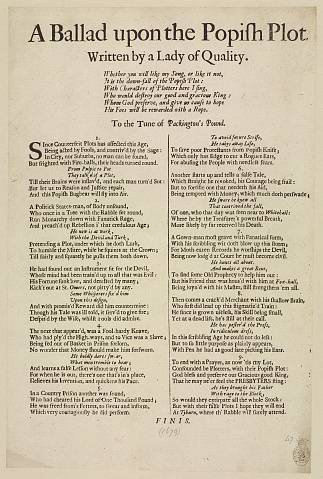 A Ballad upon the Popish Plot
Written by a Lady of Quality.
Whether you will like my Song, or like it not,
It is the down-fall of the Popish Plot:
With Characters of Plotters here I sing,
Who would destroy our good and gracious King;
Whom God preserve, and give us cause to hope
His Foes will be rewarded with a Rope.
To the Tune of Packington's Pound.
1.
Since Counterfeit Plots has affected this Age,
Being acted by Fools, and contriv'd by the Sage:
In City, nor Suburbs, no man can be found,
But frighted with Fire-balls, their heads turned round.
From Pulpit to Pot
They talk'd of a Plot,
Till their Brains were inslav'd, and each man turn'd Sot:
But let us to Reason and Justice repair,
And this Popish Bugbear will fly into Air.
2.
A Politick States-man, of Body unsound,
Who once in a Tree with the Rabble set round,
Run Monarchy down with Fanatick Rage,
And preach'd up Rebellion i' that credulous Age;
He now is at work,
With the Devil and Turk,
Pretending a Plot, under which he doth lurk,
To humble the Miter, while he squints at the Crown;
Till fairly and squarely he pulls them both down.
3.
He had found out an Instrument fit for the Devil,
Whose mind had been train'd up to all that was Evil:
His Fortune sunk low, and detested by many,
Kick'd out at St. Omers, not pitty'd by any.
Some Whisperer fix'd him
Upon this design,
And with promis'd Reward did him countermine:
Though his Tale was ill told, it serv'd to give fire;
Despis'd by the Wise, whilst Fools did admire.
4.
The next that appear'd, was a Fool-hardy Knave,
Who had ply'd the High-ways, and to Vice was a Slave;
Being fed out of Basket in Prison forlorn,
No wonder that Money should make him forsworn.
He boldly dares swear,
What men tremble to hear;
And learns a false Lesson without any fear:
For when he is out, there's one that's in's place,
Relieves his Invention, and quickens his Pace.
5.
In a Country Prison another was found,
Who had cheated his Lord of One Thousand Pound;
He was freed from's Fetters, to swear and inform,
Which very couragiously he did perform.
To avoid future Strife,
He takes away Life,
To save poor Protestants from Popish Knife;
Which only has Edge to cut a Rogues Ears,
For abusing the People with needless Fears.
6.
Another starts up and tells a false Tale,
Which straight he revoked, his Courage being stale:
But to fortifie one that needeth his Aid,
Being tempted with Money, which much doth perswade;
He swore he knew all
That contriv'd the fall,
Of one, who that day was seen near to Whitehall:
Where he by the Treasurer's powerful Breath,
Most likely by far received his Death.
7.
A Gown-man most grave with Fanatical form,
With his scribbling wit doth blow up this Storm;
For Moth-eaten Records he worships the Devil,
Being now lodg'd at Court he must become civil.
He hunts all about,
And makes a great Rout,
To find some Old Prophecy to help him out:
But his Friend that was hous'd with him at Fox-hall,
Being ty'd with his Master, still strengthens 'em all.
8.
Then comes a crack'd Merchant with his shallow Brain,
Who first did lead up this stigmatiz'd Train;
He since is grown useless, his Skill being small,
Yet at a dead lift, he's still at their call.
He has pester'd the Press,
In ridiculous dress,
In this scribbling Age he could not do less:
But to so little purpose as plainly appears,
With Pen he had as good face picking his Ears.
9.
To end with a Prayer, as now 'tis my Lot,
Confounded be Plotters, with their Popish Plot:
God bless and preserve our Gracious good King,
That he may ne'er feel the PRESBYTERS sting:
As they brought his Father
With rage to the Block,
So would they extirpate all the whole Stock:
But with these false Plots I hope they will end
At Tyburn, where th' Rabble will surely attend.
FINIS.
(1679)